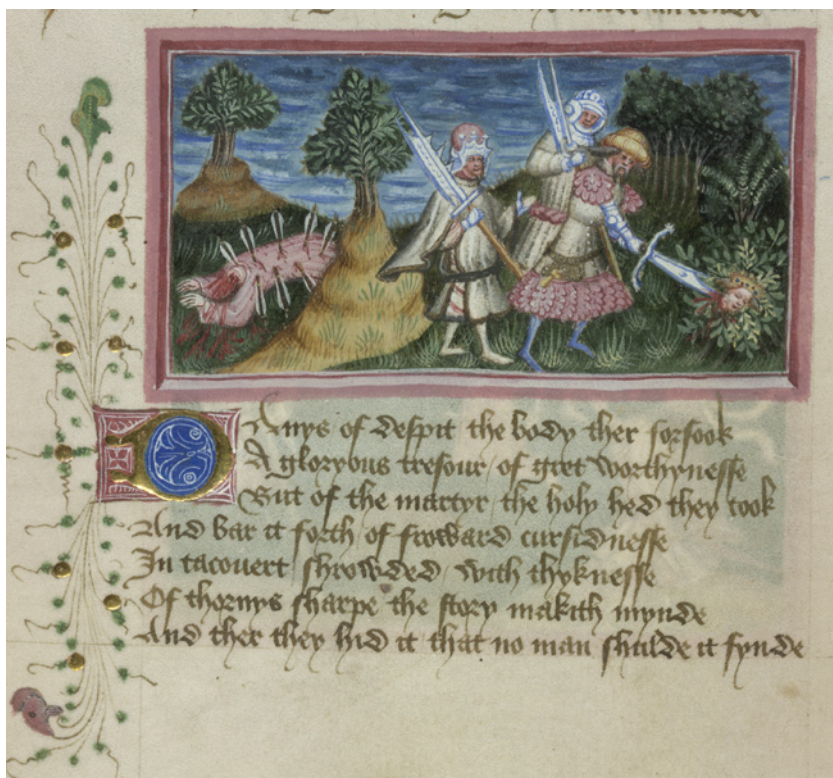 Danys of despit the body ther forsook
A gloryous tresour / of gret worthynesse
But of the martyr the holy hed they took
And bar it forth of froward cursidnesse
In tacouert shrowded / with thyknesse
Of thornys sharpe the story makith mynde
And ther they hid it that no man shulde it fynde